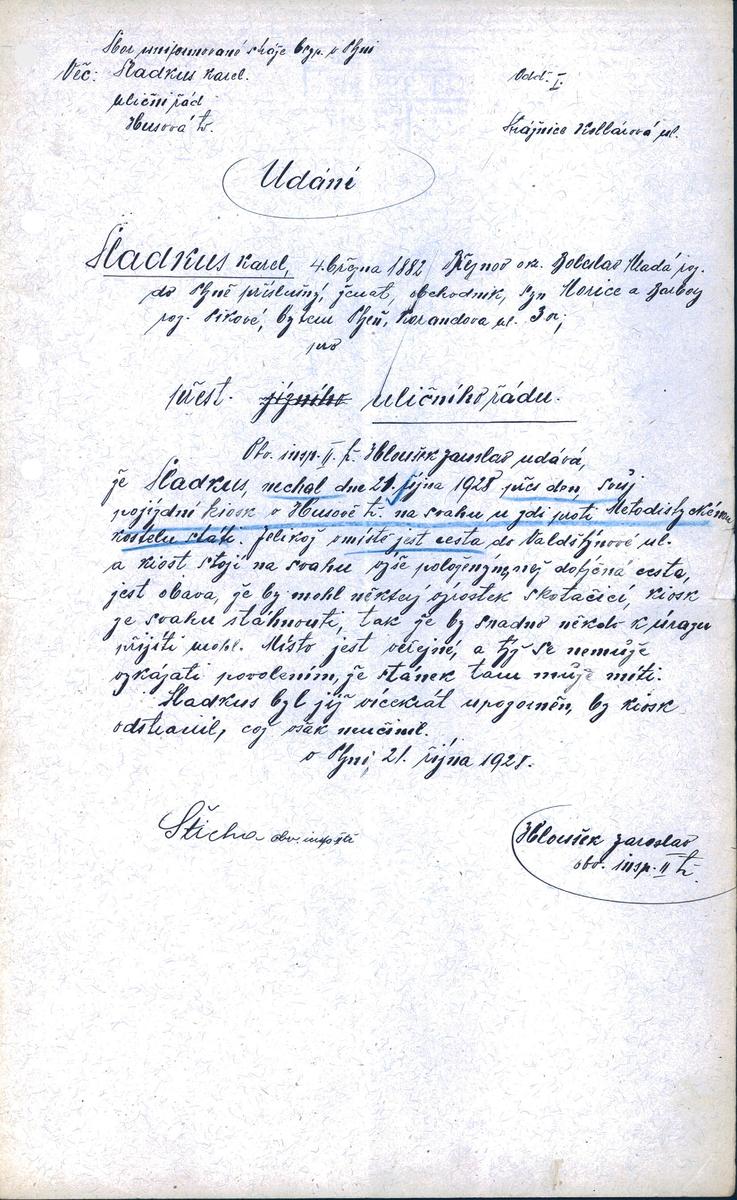 Sbor uniformované stráže bezp. v Plzni
Věc: Sladkus Karel. Odd. I.
uliční řád
Husova tř. Strážnice Kollárová ul.
Udání
Sladkus Karel, 4. března 1882 ok. Boleslav Mladá roz.
do Plzně příslušný, ženat, obchodník, syn Morice a Barbory
roz. Pikové, bytem Plzeň, Korandova ul. 3
pro
přest. jízního uličního řádu.
Obv. insp. II. tř. Hloušek Jaroslav udává,
že Sladkus, nechal dne 21. října 1928 přes den, svůj
pojízdní kiosk v Husově tř. na svahu, u zdi proti Metodistyckému
kostelu státi. Jelikož v místě jest cesta do Valdštýnové ul.
a kiost stojí na svahu výše položeným, než dotyčná cesta,
jest obava, že by mohl některý výrostek skotačící, kiosk
ze svahu stáhnouti, tak že by snadno někdo k úrazu
přijíti mohl. Místo jest veřejné, a týž se nemůže
vykázati povolením, že stánek tam může míti.
Sladkus byl již vícekrát upozorněn, by kiosk
odstranil, což však neučinil.
v Plzni, 21. října 1928.
Šticha obv. insp. Hloušek Jaroslav
obv. insp. II tř.